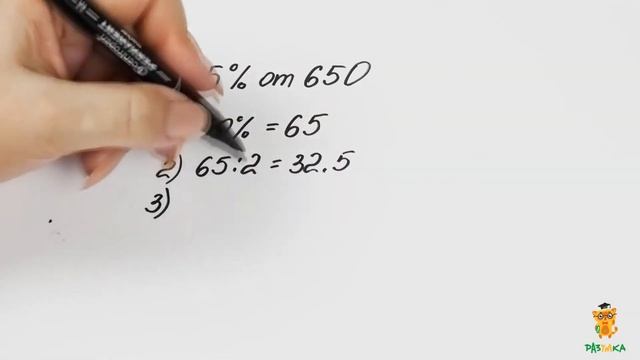 5% от 650
0% = 65
2) 65:2 = 32.5
3)
РАЗУМКА